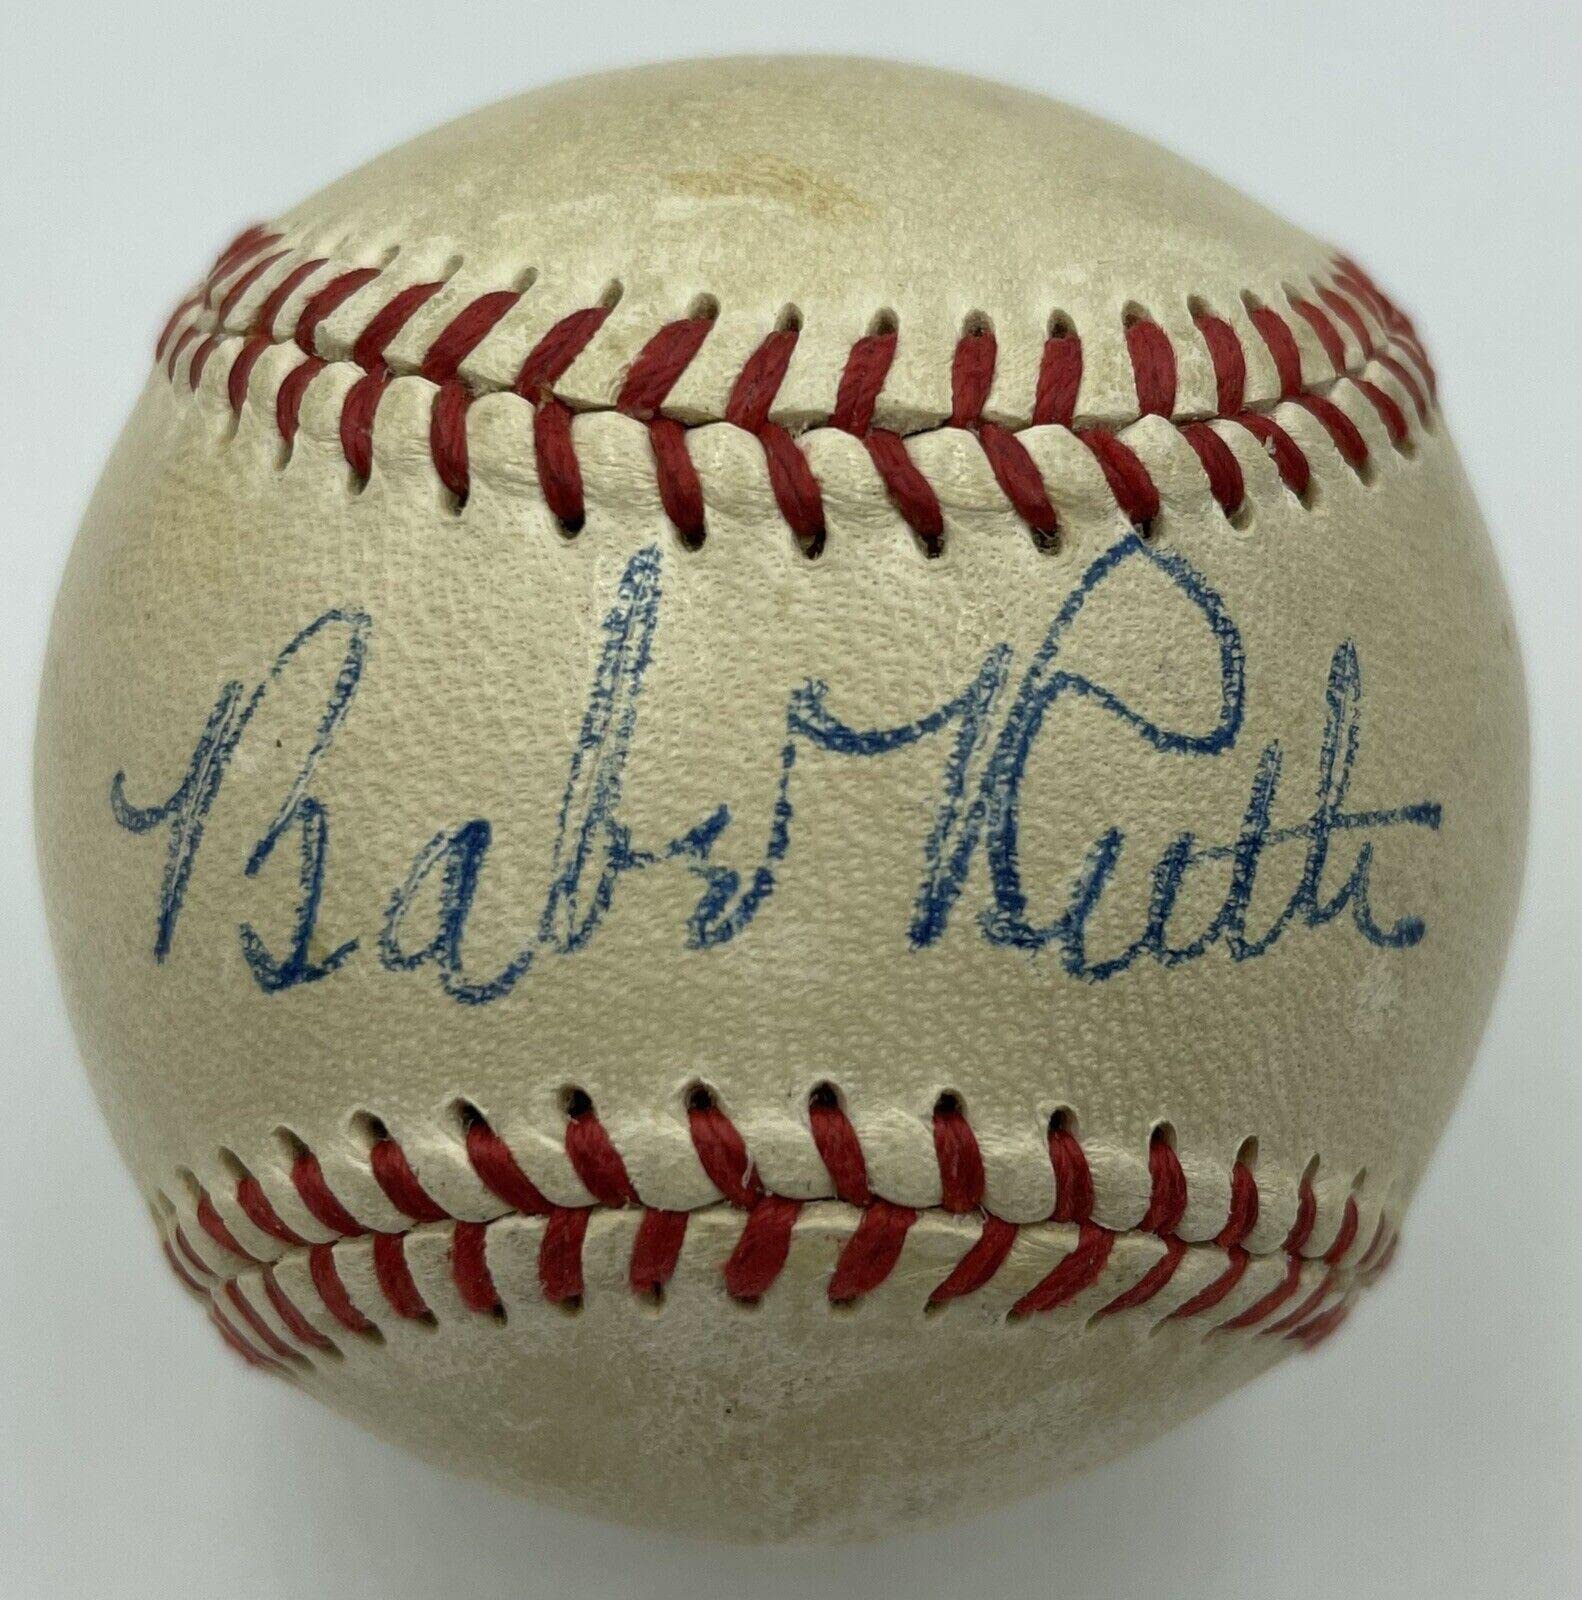 Babe Ruth